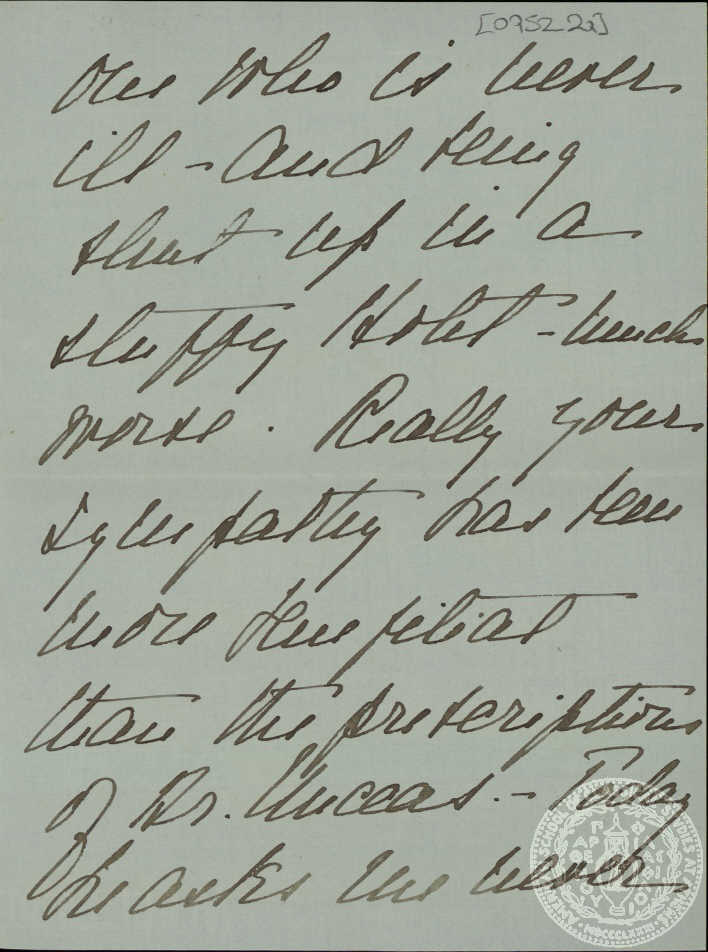 [0952 2a]
one who is never
ill - and being
shut up in a
stuffy Hotel - much
worse. Really your
sympathy has been
more beneficial
than the prescriptions
of Dr. - Today
he asks me never